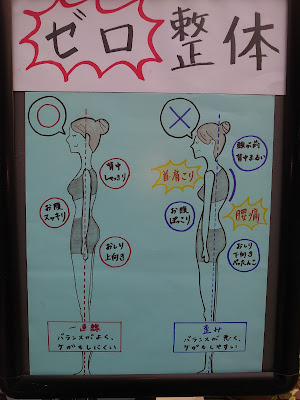 ゼロ整体
背中
しゃっきり
お腹
スッキリ
おしり
上向き
一直線
バランスがよく、
ケガもしにくい
頭が前
背中まるい
首肩こり
お腹
ぽっこり
腰痛
おしり
下向き
ぺったんこ
歪み
バランスが悪く、
ケガもしやすい